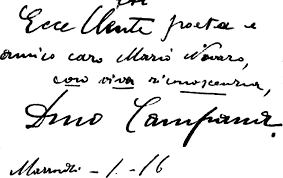 Eccellente poeta e
amico caro Mario Novaro,
con viva riconoscenza,
Dino Campana.
Marradi - 1. - 16